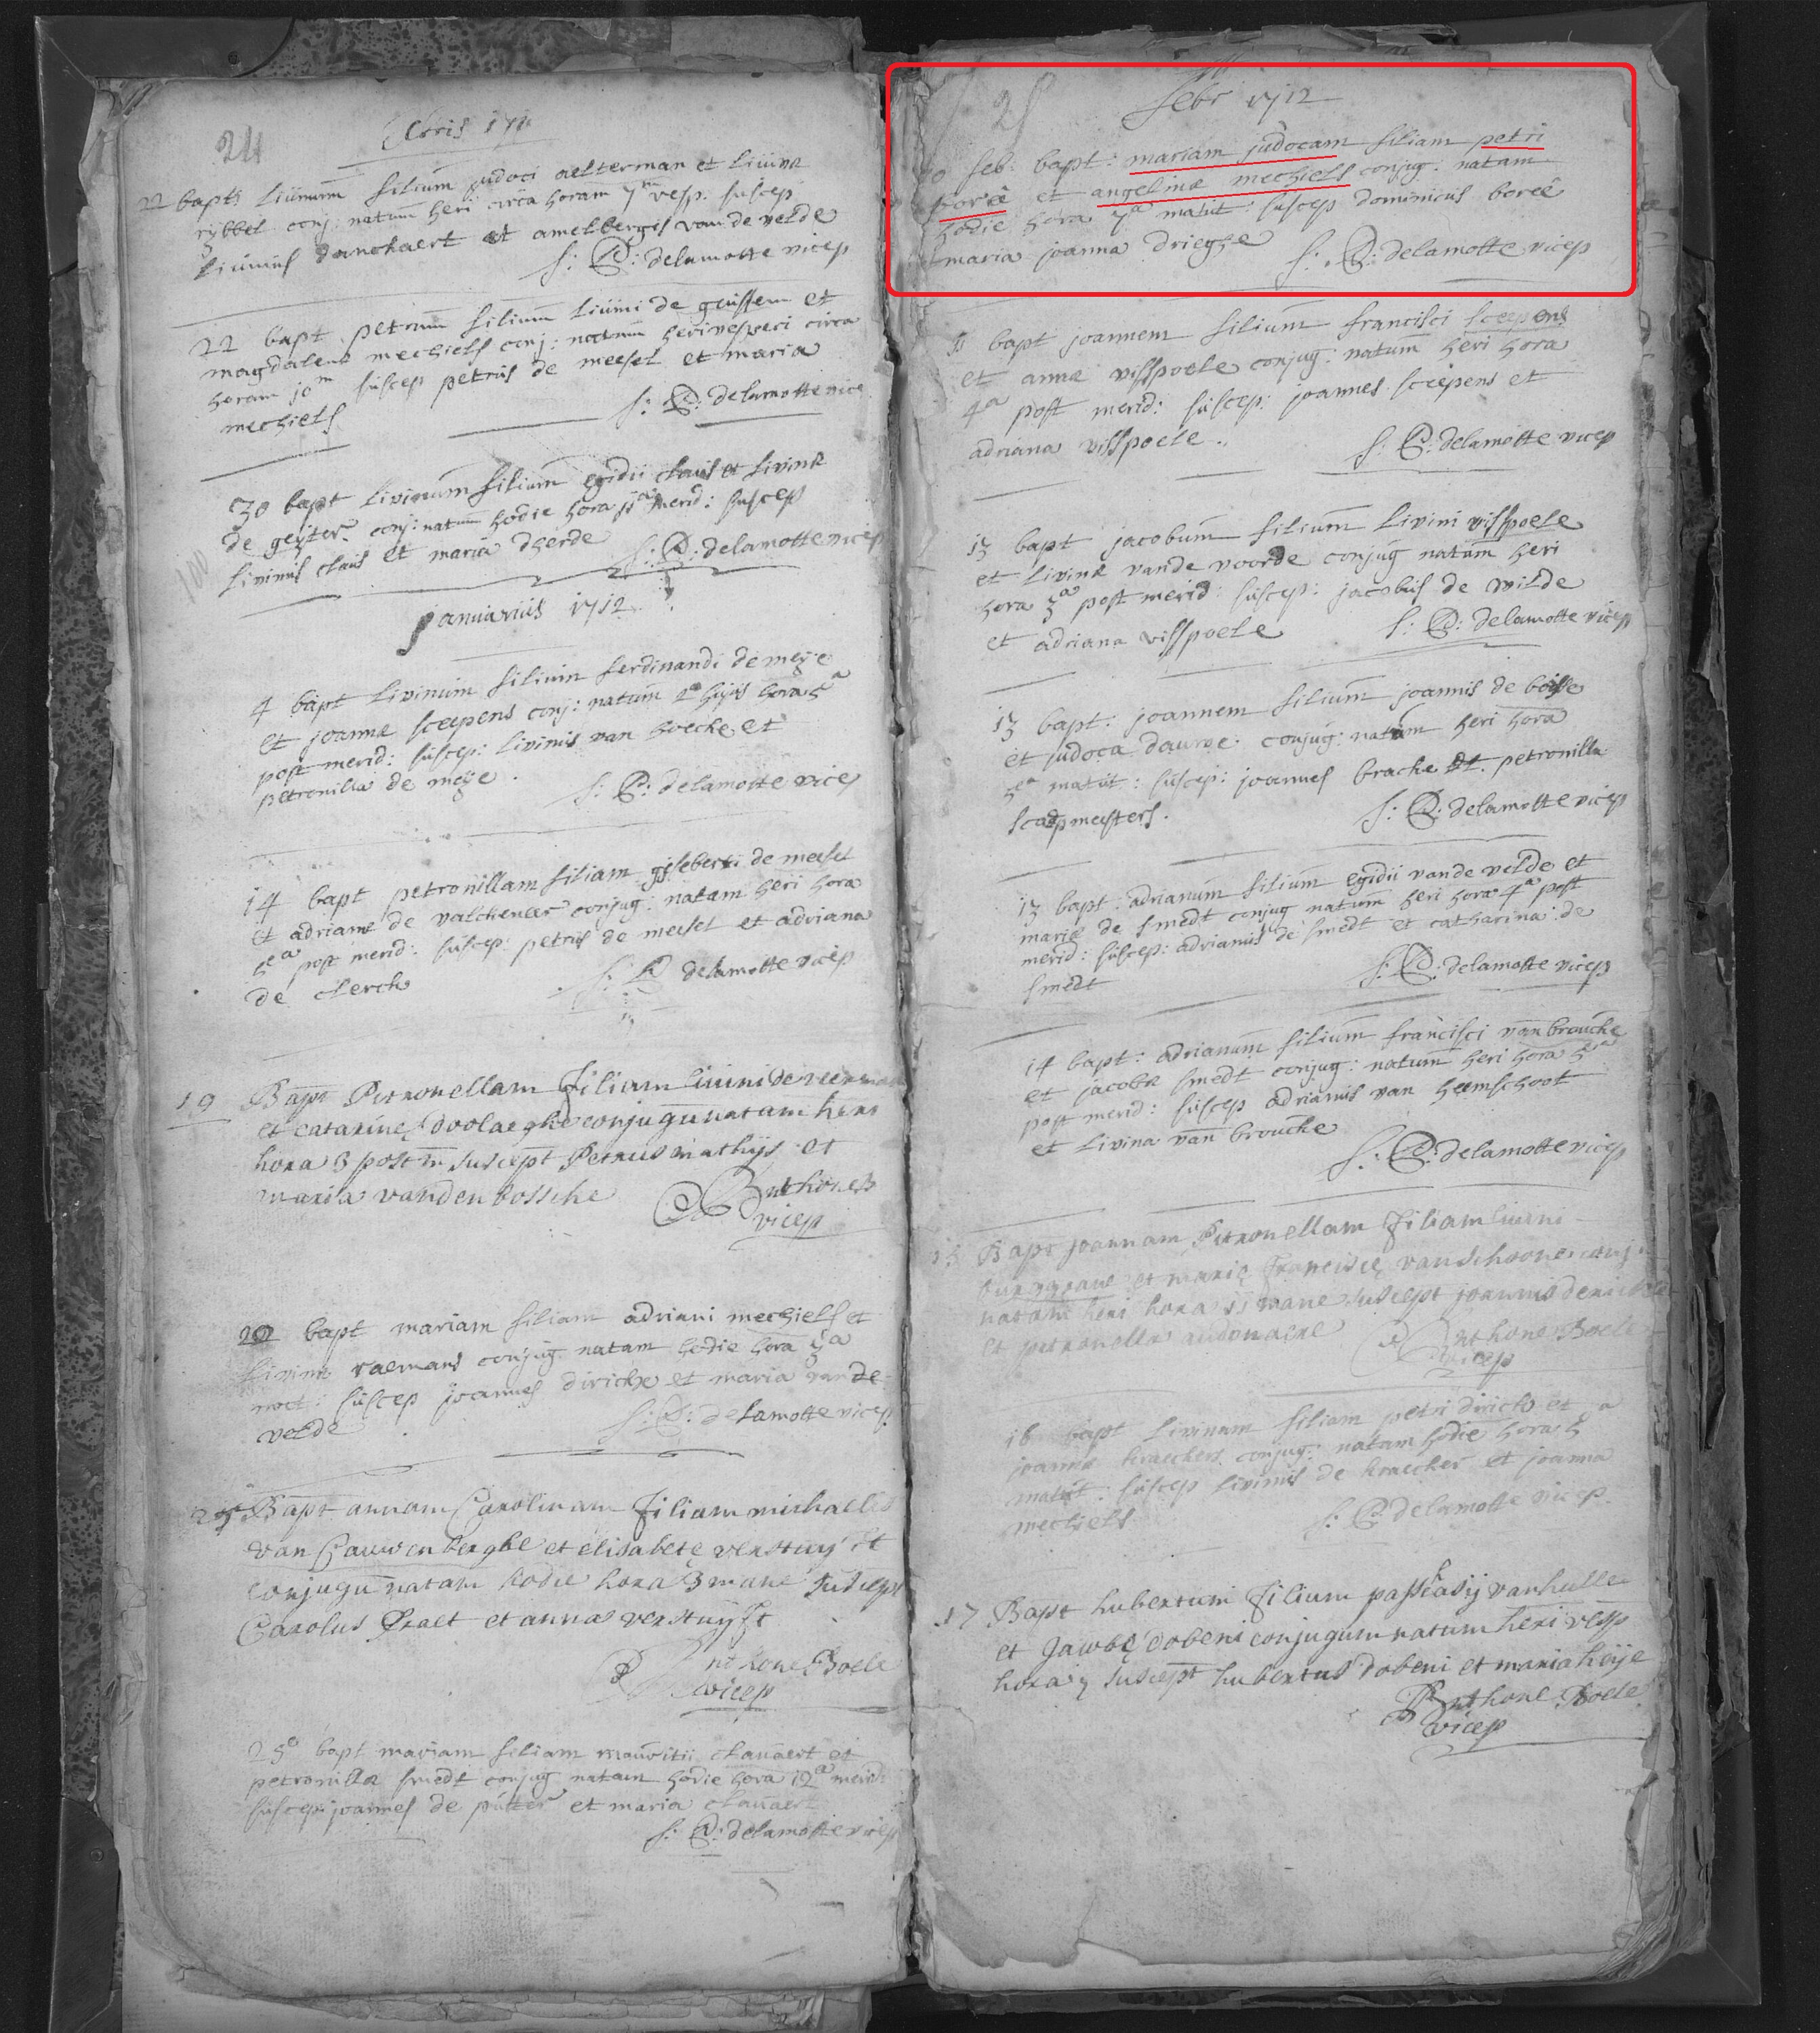 24
Xbris 1711
22 baptis livinum filium judoci aelterman et livinæ
rijbbel conj: natum heri circa horam 7m vesp: suscep
livinus danckaert et amelbergis van de velde
f: C: delamotte vicep
22 bapt petrum filium livini de guissem et
magdalenæ mechiels conj: natum heri vesperi circa
horam 10m suscep petrus de meesel et maria
mechiels
f: C: delamotte vice
30 bapt livinum filium egidii claus et livinæ
de geijter conj: natum hodie hora 11a merid: suscep
livinus claus et maria dherde
f: C: delamotte vicep
100
januarius 1712
4 bapt livinum filium ferdinandi de meije
et joannæ sceepens conj: natum 2a hujus hora 5a
post merid: suscep: livinus van boecke et
petronilla de meije
f: C: delamotte vicep
14 bapt petronillam filiam gisleberti de meesel
et adrianæ de valckeneer conjug: natam heri hora
5a post merid: suscep: petrus de meesel et adriana
de clerck
f: C delamotte vicep
19 Bapt Petronellam filiam livini de
et catarinę conjugum natam heri
hora 3 post m suscept Petrus mathijs et
maria vanden bossche
vicep
22 bapt mariam filiam adriani mechiels et
livinæ raemans conjug natam hodie hora 3a
noct: suscep joannes dirickx et maria van de
velde
f: C: delamotte vicep
25 Bapt annam Carolinam filiam michaelis
van Cauwenberghe et elisabetę verstuijft
conjugum natam hodie hora 3 mane suscept
Carolus Praet et anna verstuijft
Anthone Boele
vicep
25o bapt mariam filiam mauritii clauaert et
petronillæ smedt conjug natam hodie hora 12a merid
suscep: joannes de putter et maria clauaert
f: C: delamotte vicep
25
febr 1712
10 feb: bapt: mariam judocam filiam petri
boreê et angelinæ mechiels conjug: natam
hodie hora 7a matut: suscep dominicus boreê
maria joanna drieghe
f: C: delamotte vicep
11 bapt joannem filium francisci sceepens
et annæ visspoele conjug: natum heri hora
4a post merid: suscep: joannes sceepens et
adriana visspoele
f: C: delamotte vicep
13 bapt jacobum filium livini visspoele
et livinæ vande voorde conjug natum heri
hora 3a post merid: suscep: jacobus de wilde
et adriana visspoele
f: C: delamotte vicep
13 bapt: joannem filium joannis de
et judoca dauwe conjug: natum heri hora
5a matut: suscep: joannes bracke et petronilla
scaepmeesters.
f: C: delamotte vicep
13 bapt: adrianum filium egidii vande velde et
mariæ de smedt conjug natum heri hora 4a post
merid: suscep: adrianus de smedt et catharina de
smedt
f: C: delamotte vicep
14 bapt: adrianum filium francisci van broucke
et jacobæ smedt conjug: natum heri hora 5a
post merid: suscep adrianus van heemschoot
et livina van broucke
f: C: delamotte vicep
15 Bapt joannam Petronellam filiam livini
burggrave et marię franciscę van schoone conj
natam heri hora 11 mane suscept joannis
et petronella audonaere
Anthone Boele
vicep
16 bapt livinam filiam petri dirickx et
joannæ kraecker conjug: natam hodie hora 5a
matut: suscep livinus de kraecker et joanna
mechiels
f: C: delamotte vicep
17 Bapt hubertum filium passchasij van hulle
et Jacobę dobeni conjugum natum heri vesp
hora 7 suscept hubertus dobeni et maria heije
Anthone Boele
vicep